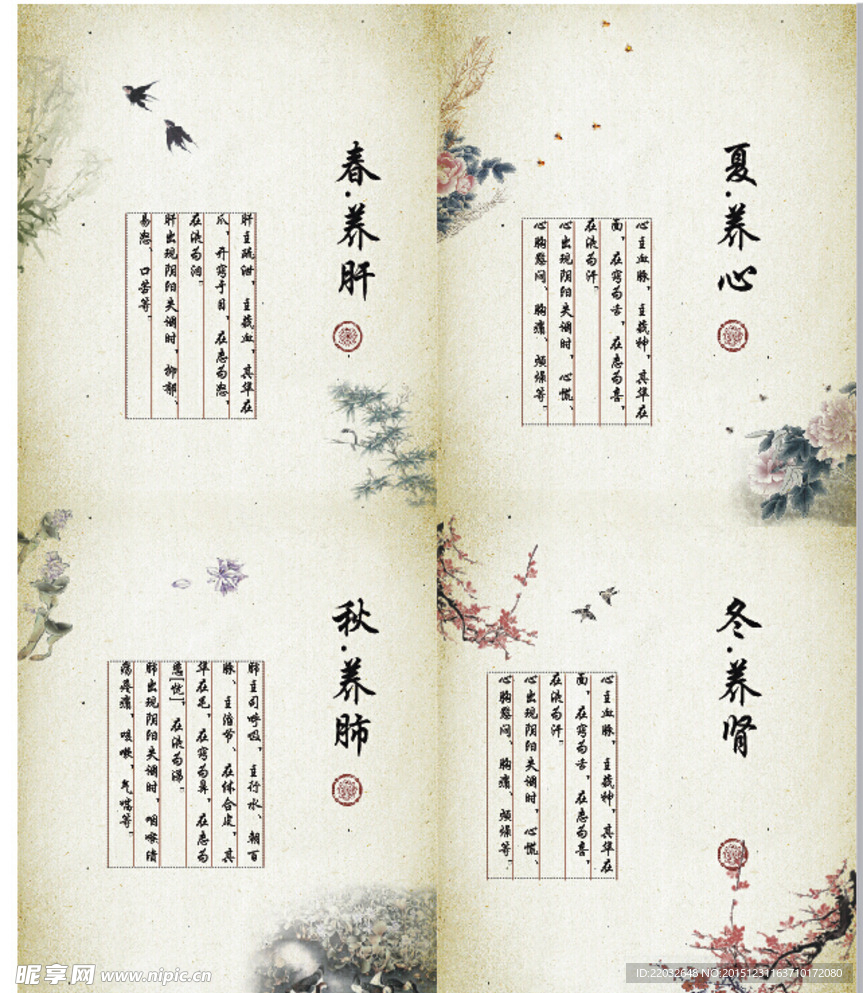 春·养肝
肝主疏泄，主藏血，其华在
爪，开窍于目，在志为怒，
在液为泪。
肝出现阴阳失调时，抑郁、
易怒、口苦等。
夏·养心
心主血脉，主藏神，其华在
面，在窍为舌，在志为喜，
在液为汗。
心出现阴阳失调时，心慌、
心胸憋闷、胸痛、烦燥等。
秋·养肺
肺主司呼吸，主行水、朝百
脉、主治节、在体合皮，其
华在毛，在窍为鼻，在志为
悲[忧]，在液为涕。
肺出现阴阳失调时，咽喉溃
疡疼痛、咳嗽、气喘等。
冬·养肾
心主血脉，主藏神，其华在
面，在窍为舌，在志为喜，
在液为汗。
心出现阴阳失调时，心慌、
心胸憋闷、胸痛、烦燥等。
昵享网 www.nipic.cn
ID:22032648 NO:20151231163710172080